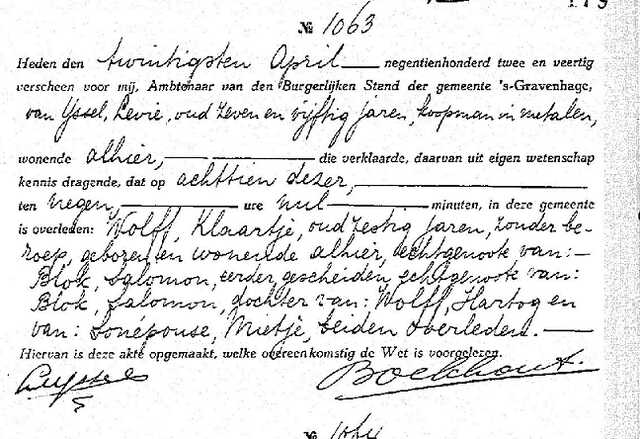 № 1063
Heden den twintigsten April negentienhonderd twee en veertig
verscheen voor mij, Ambtenaar van den Burgerlijken Stand der gemeente 's-Gravenhage,
van Yssel, Levie, oud zeven en vijftig jaren, koopman in metalen,
wonende alhier, die verklaarde, daarvan uit eigen wetenschap
kennis dragende, dat op achttien dezer,
ten negen, ure nul minuten, in deze gemeente
is overleden: Wolff, Klaartje, oud zestig jaren, zonder be-
roep, geboren en wonende alhier, echtgenoote van:
Blok, Salomon, eerder gescheiden echtgenoote van:
Blok, Salomon, dochter van: Wolff, Hartog en
van: Sonépouse, Mietje, beiden overleden.
Hiervan is deze akte opgemaakt, welke overeenkomstig de Wet is voorgelezen.
Boekhout.
№ 1064